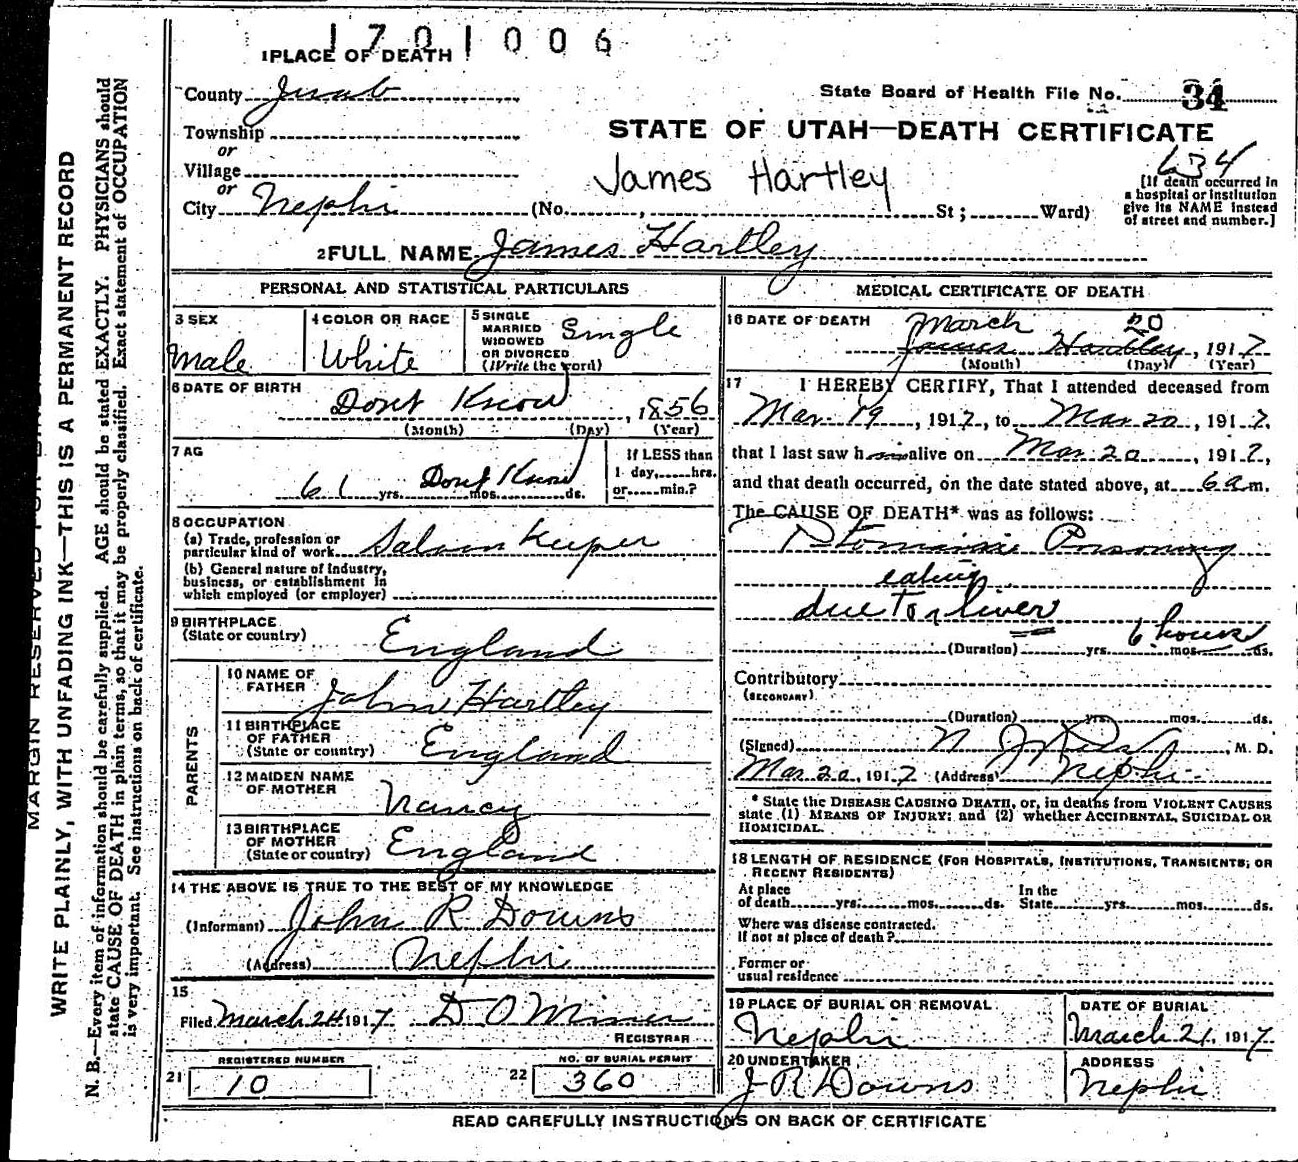 1701006
1 PLACE OF DEATH
County Juab
State Board of Health File No. 34
Township
or
STATE OF UTAH—DEATH CERTIFICATE
634
Village
or
James Hartley
City Nephi (No. , St; Ward)
[If death occurred in
a hospital or institution
give its NAME instead
of street and number.]
2 FULL NAME James Hartley
PERSONAL AND STATISTICAL PARTICULARS
3 SEX
Male
4 COLOR OR RACE
White
5 SINGLE
MARRIED
WIDOWED
OR DIVORCED
(Write the word)
Single
6 DATE OF BIRTH
Dont Know , 1856
(Month) (Day) (Year)
7 AG
61 yrs. Dont Know mos. ds.
If LESS than
1 day, hrs.
or min.?
8 OCCUPATION
(a) Trade, profession or
particular kind of work Saloon Keeper
(b) General nature of industry,
business, or establishment in
which employed (or employer)
9 BIRTHPLACE
(State or country) England
PARENTS
10 NAME OF
FATHER John Hartley
11 BIRTHPLACE
OF FATHER
(State or country) England
12 MAIDEN NAME
OF MOTHER Nancy
13 BIRTHPLACE
OF MOTHER
(State or country) England
14 THE ABOVE IS TRUE TO THE BEST OF MY KNOWLEDGE
(Informant) John R Downs
(Address) Nephi
15
Filed March 24 1917 D O Miner
REGISTRAR
REGISTERED NUMBER
21 10
NO. OF BURIAL PERMIT
22 360
MEDICAL CERTIFICATE OF DEATH
16 DATE OF DEATH March 20
James Hartley , 1917
(Month) (Day) (Year)
17 I HEREBY CERTIFY, That I attended deceased from
Mar 19 , 1917, to Mar 20 , 1917.
that I last saw h alive on Mar 20 , 1917,
and that death occurred, on the date stated above, at 6 a m.
The CAUSE OF DEATH* was as follows:
Ptomaine Poisoning
eating
due to liver
6 hours
(Duration) yrs. mos. ds.
Contributory
(SECONDARY)
(Duration) yrs. mos. ds.
(Signed) , M. D.
Mar 20, 1917 (Address) Nephi
* State the DISEASE CAUSING DEATH, or, in deaths from VIOLENT CAUSES
state (1) MEANS OF INJURY; and (2) whether ACCIDENTAL, SUICIDAL OR
HOMICIDAL.
18 LENGTH OF RESIDENCE (FOR HOSPITALS, INSTITUTIONS, TRANSIENTS, OR
RECENT RESIDENTS)
At place
of death yrs. mos. ds.
In the
State yrs. mos. ds.
Where was disease contracted.
if not at place of death?
Former or
usual residence
19 PLACE OF BURIAL OR REMOVAL
Nephi
DATE OF BURIAL
March 21, 1917
20 UNDERTAKER
J R Downs
ADDRESS
Nephi
READ CAREFULLY INSTRUCTIONS ON BACK OF CERTIFICATE
MARGIN RESERVED FOR
WRITE PLAINLY, WITH UNFADING INK—THIS IS A PERMANENT RECORD
N. B.—Every item of information should be carefully supplied. AGE should be stated EXACTLY. PHYSICIANS should
state CAUSE OF DEATH in plain terms, so that it may be properly classified. Exact statement of OCCUPATION
is very important. See instructions on back of certificate.